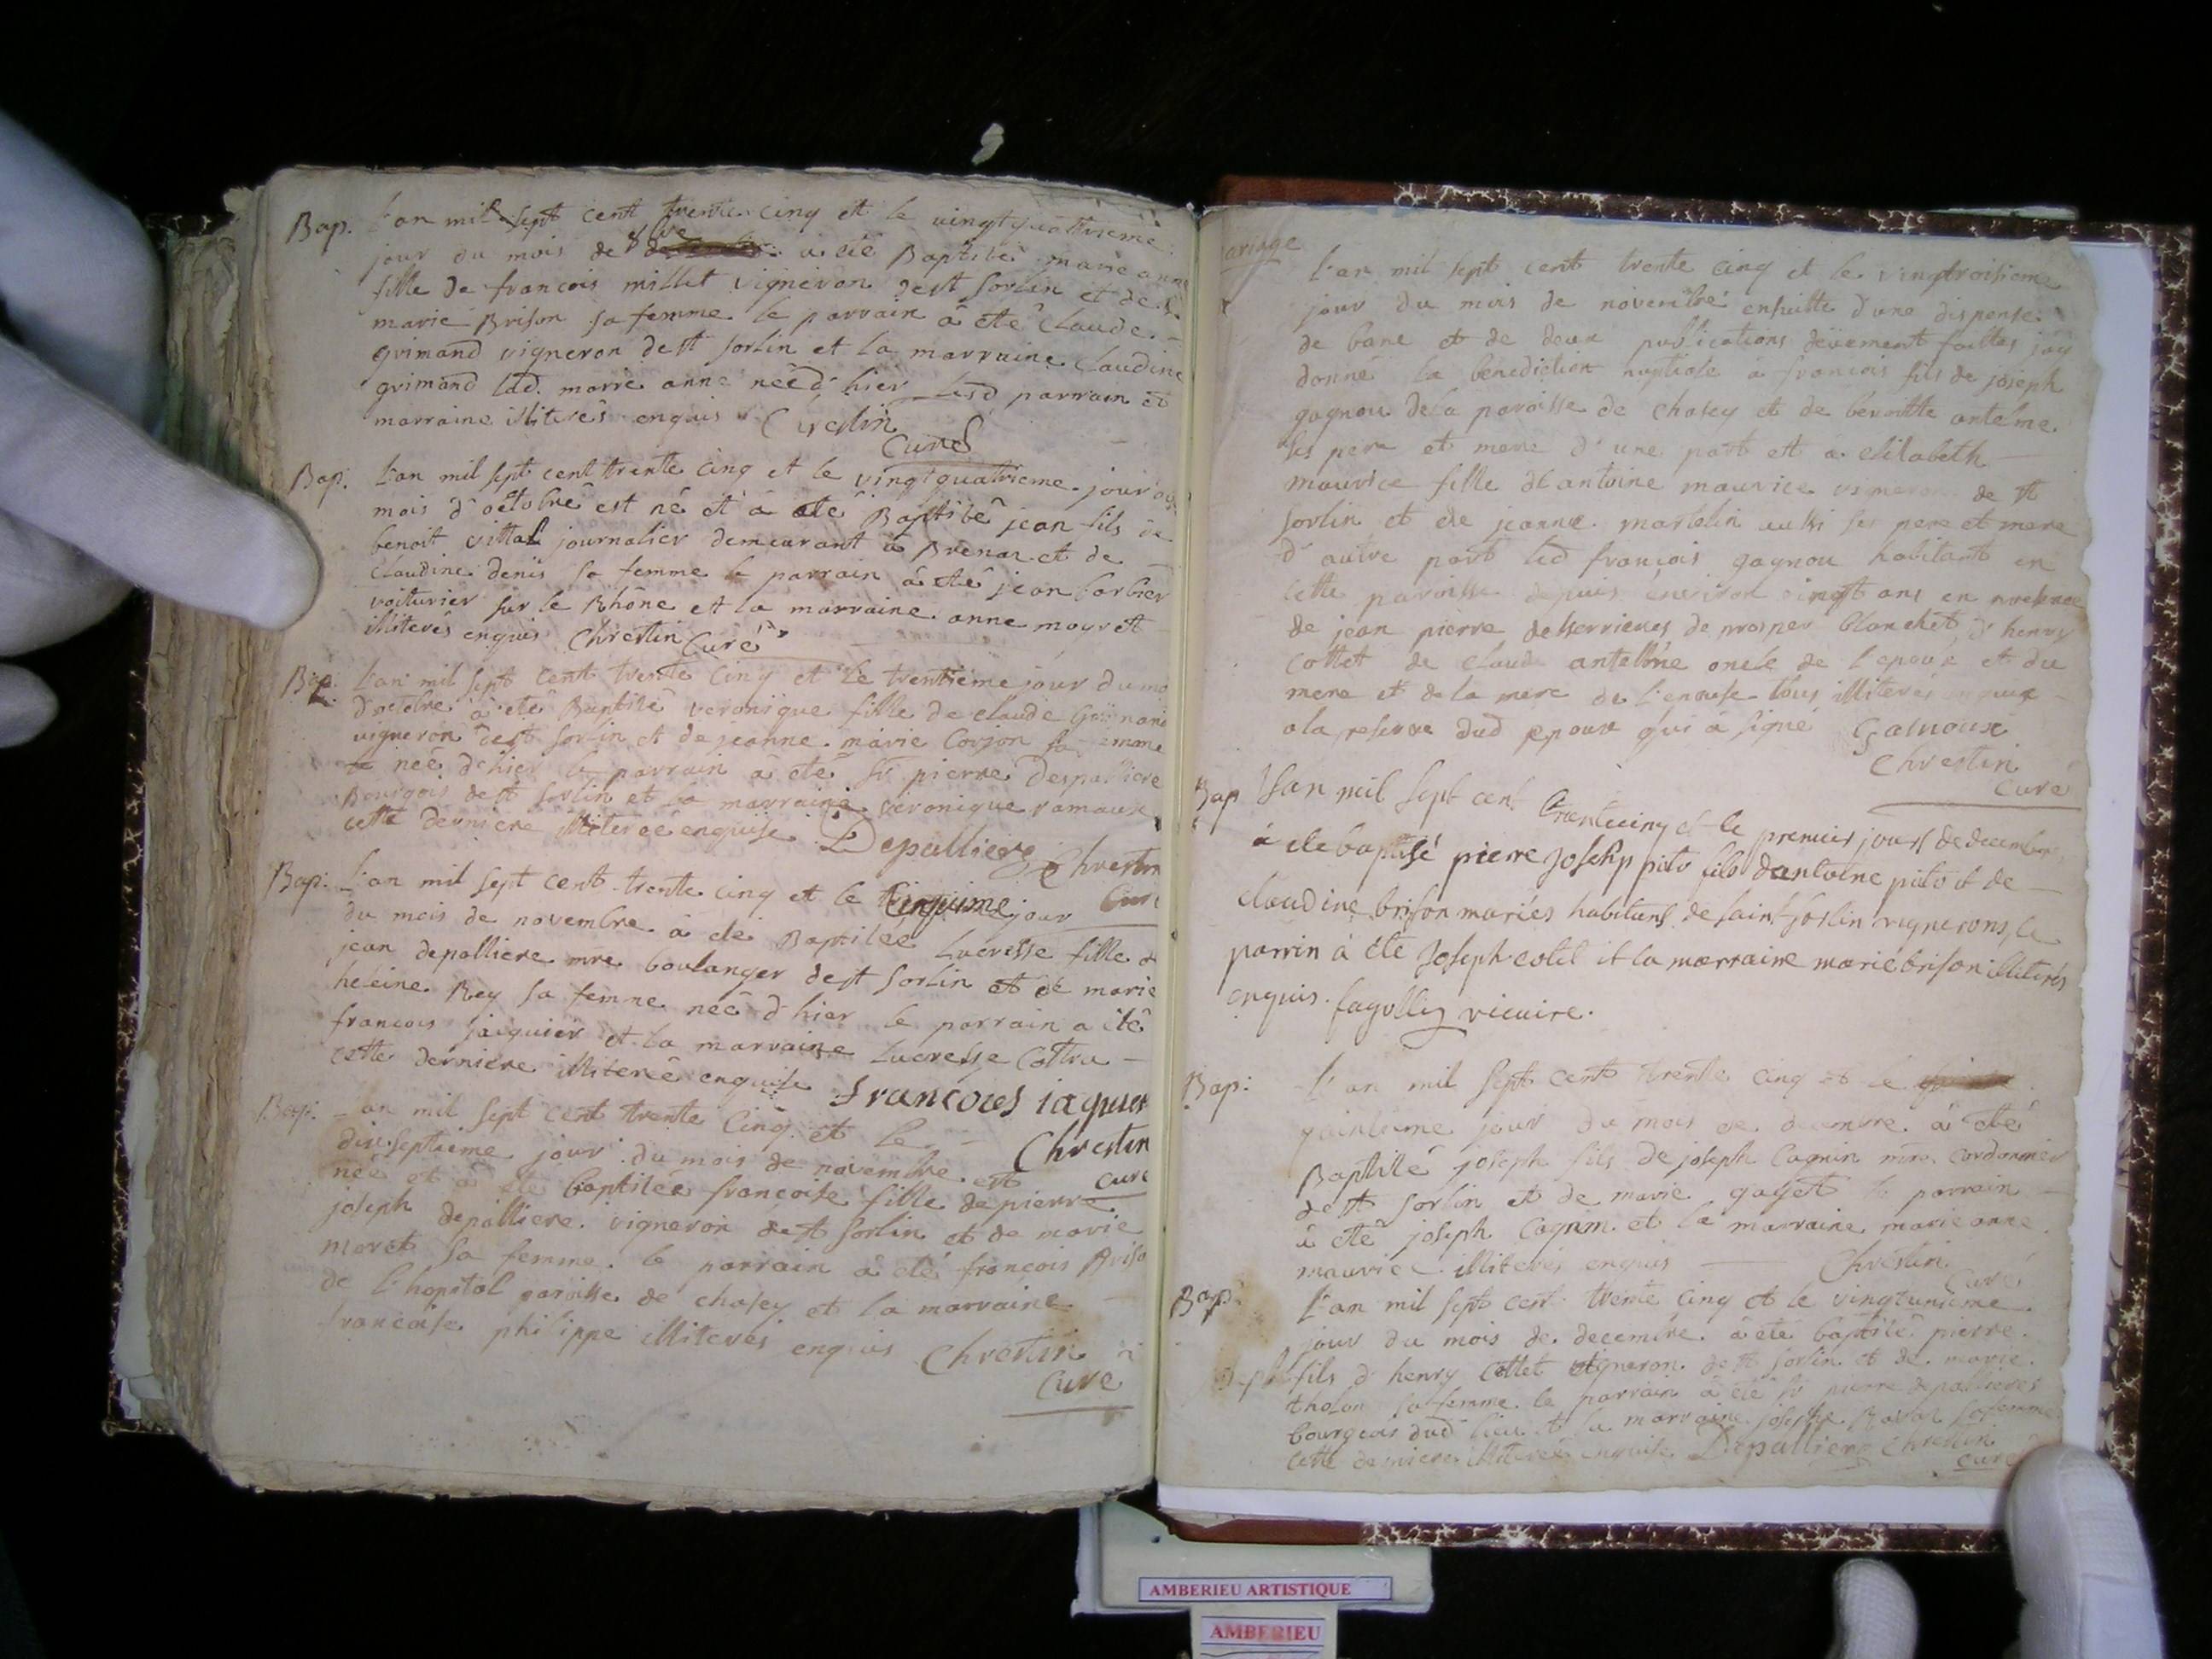 Bap. L'an mil sept cent trente cinq et le vingtquattrieme
jour du mois de 8bre a été Baptisée marie anne
fille de francois millet vigneron de st sorlin et de
marie Brison sa femme le parrain à été claude
grimand vigneron de st sorlin et la marraine claudine
grimand lad. marie anne née d'hier lesd parrain et
marraine illiterés enquis Chrestin
Curé
Bap. L'an mil sept cent trente cinq et le vingtquatrieme jour du
mois d'octobre est né et à été Baptisé jean fils de
benoit vittal journalier demeurant à Brenaz et de
claudine denis sa femme le parrain à été jean barbier
voiturier sur le Rhône et la marraine anne moyret
illiterés enquis Chrestin Curé
Bap. L'an mil sept cent trente cinq et le trentieme jour du mo
d'octobre à été Baptisé veronique fille de claude
vigneron de st sorlin et de jeanne marie Corjon sa femme
née d'hier le parrain à été sr pierre Despalliere
Bourgois de st sorlin et la marraine veronique ramaux
cette derniere illiterée enquise Depalliere Chrestin
Curé
Bap. L'an mil sept cent trente cinq et le cinquime jour
du mois de novembre à été Baptisée Lucresse fille d
jean depalliere mre boulanger de st sorlin et de marie
heleine Rey sa femme née d'hier le parrain a été
francois jacquier et la marraine Lucresse Cottra
cette derniere illiterée enquise francoies iaquier
Chrestin
Curé
Bap. L'an mil sept cent trente cinq et le
dix septieme jour du mois de novembre est
née et à été baptisée francoise fille de pierre
joseph depalliere vigneron de st sorlin et de marie
meret sa femme le parrain à été francois Briso
de l'hopital paroisse de chasey et la marraine
francoise philippe illiterés enquis Chrestin
Curé
ariage
L'an mil sept cent trente cinq et le vingtroisieme
jour du mois de novembre ensuitte d'une dispense
de banc et de deux publications düement faittes jay
donné la benediction nuptiale a francois fils de joseph
gagnou dela paroisse de chasey et de benoitte antelme
ses pere et mere d'une part et à elisabeth
maurice fille d'antoine maurice vigneron de st
sorlin et de jeanne martelin aussi ses pere et mere
d'autre part led françois gagnou habitant en
cette paroisse depuis environ vingt ans en presence
de jean pierre deserrieres de prosper blanchet d'henry
cottet de claude antelme oncle de l'epoux et du
mere et de la mere de l'epouse tous illiterés enquis
a la reserve dud epoux qui à signé Gainoux
Chrestin
Curé
Bap Lan mil sept cent trantecinq et le premier jours de decembre
à ete baptisé pierre Joseph pito fils dantoine pito et de
claudine brison mariés habitans de saint sorlin vignerons, le
parrin à été Joseph cotet et la marraine marie brison illiterés
enquis. fagolley vicaire.
Bap: L'an mil sept cent trente cinq et le
quinzieme jour du mois de decembre à été
Baptisé joseph fils de joseph Cagnin mre cordonnier
de st sorlin et de marie gaget le parrain
à été joseph Cagnin et la marraine marie anne
maurice illiterés enquis Chrestin
Curé
Bap: L'an mil sept cent trente cinq et le vingtunieme
jour du mois de decembre à été baptisé pierre
fils d'henry Cottet vigneron de st sorlin et de marie
tholon sa femme le parrain à été sr pierre depallieres
bourgeois dud lieu et la marraine josephe Ravat sa femme
cette derniere illiterée enquise Depalliere Chrestin
Curé
AMBERIEU ARTISTIQUE
AMBERIEU